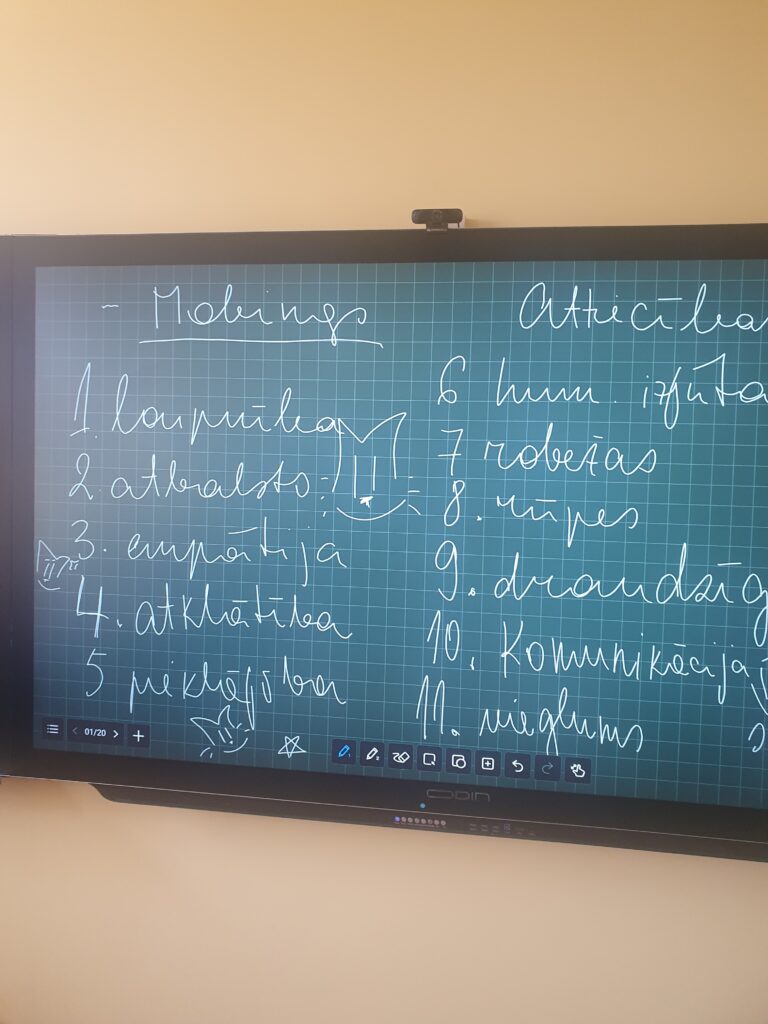 - Mobings
Attiecība
1. laipnība
2. atbalsts
3. empātija
4. atklātība
5 pieklājība
6 hum. izjūta
7 robežas
8. rūpes
9. draudzīg
10. Komunikācija
11. vieglums
01/20
ODIN